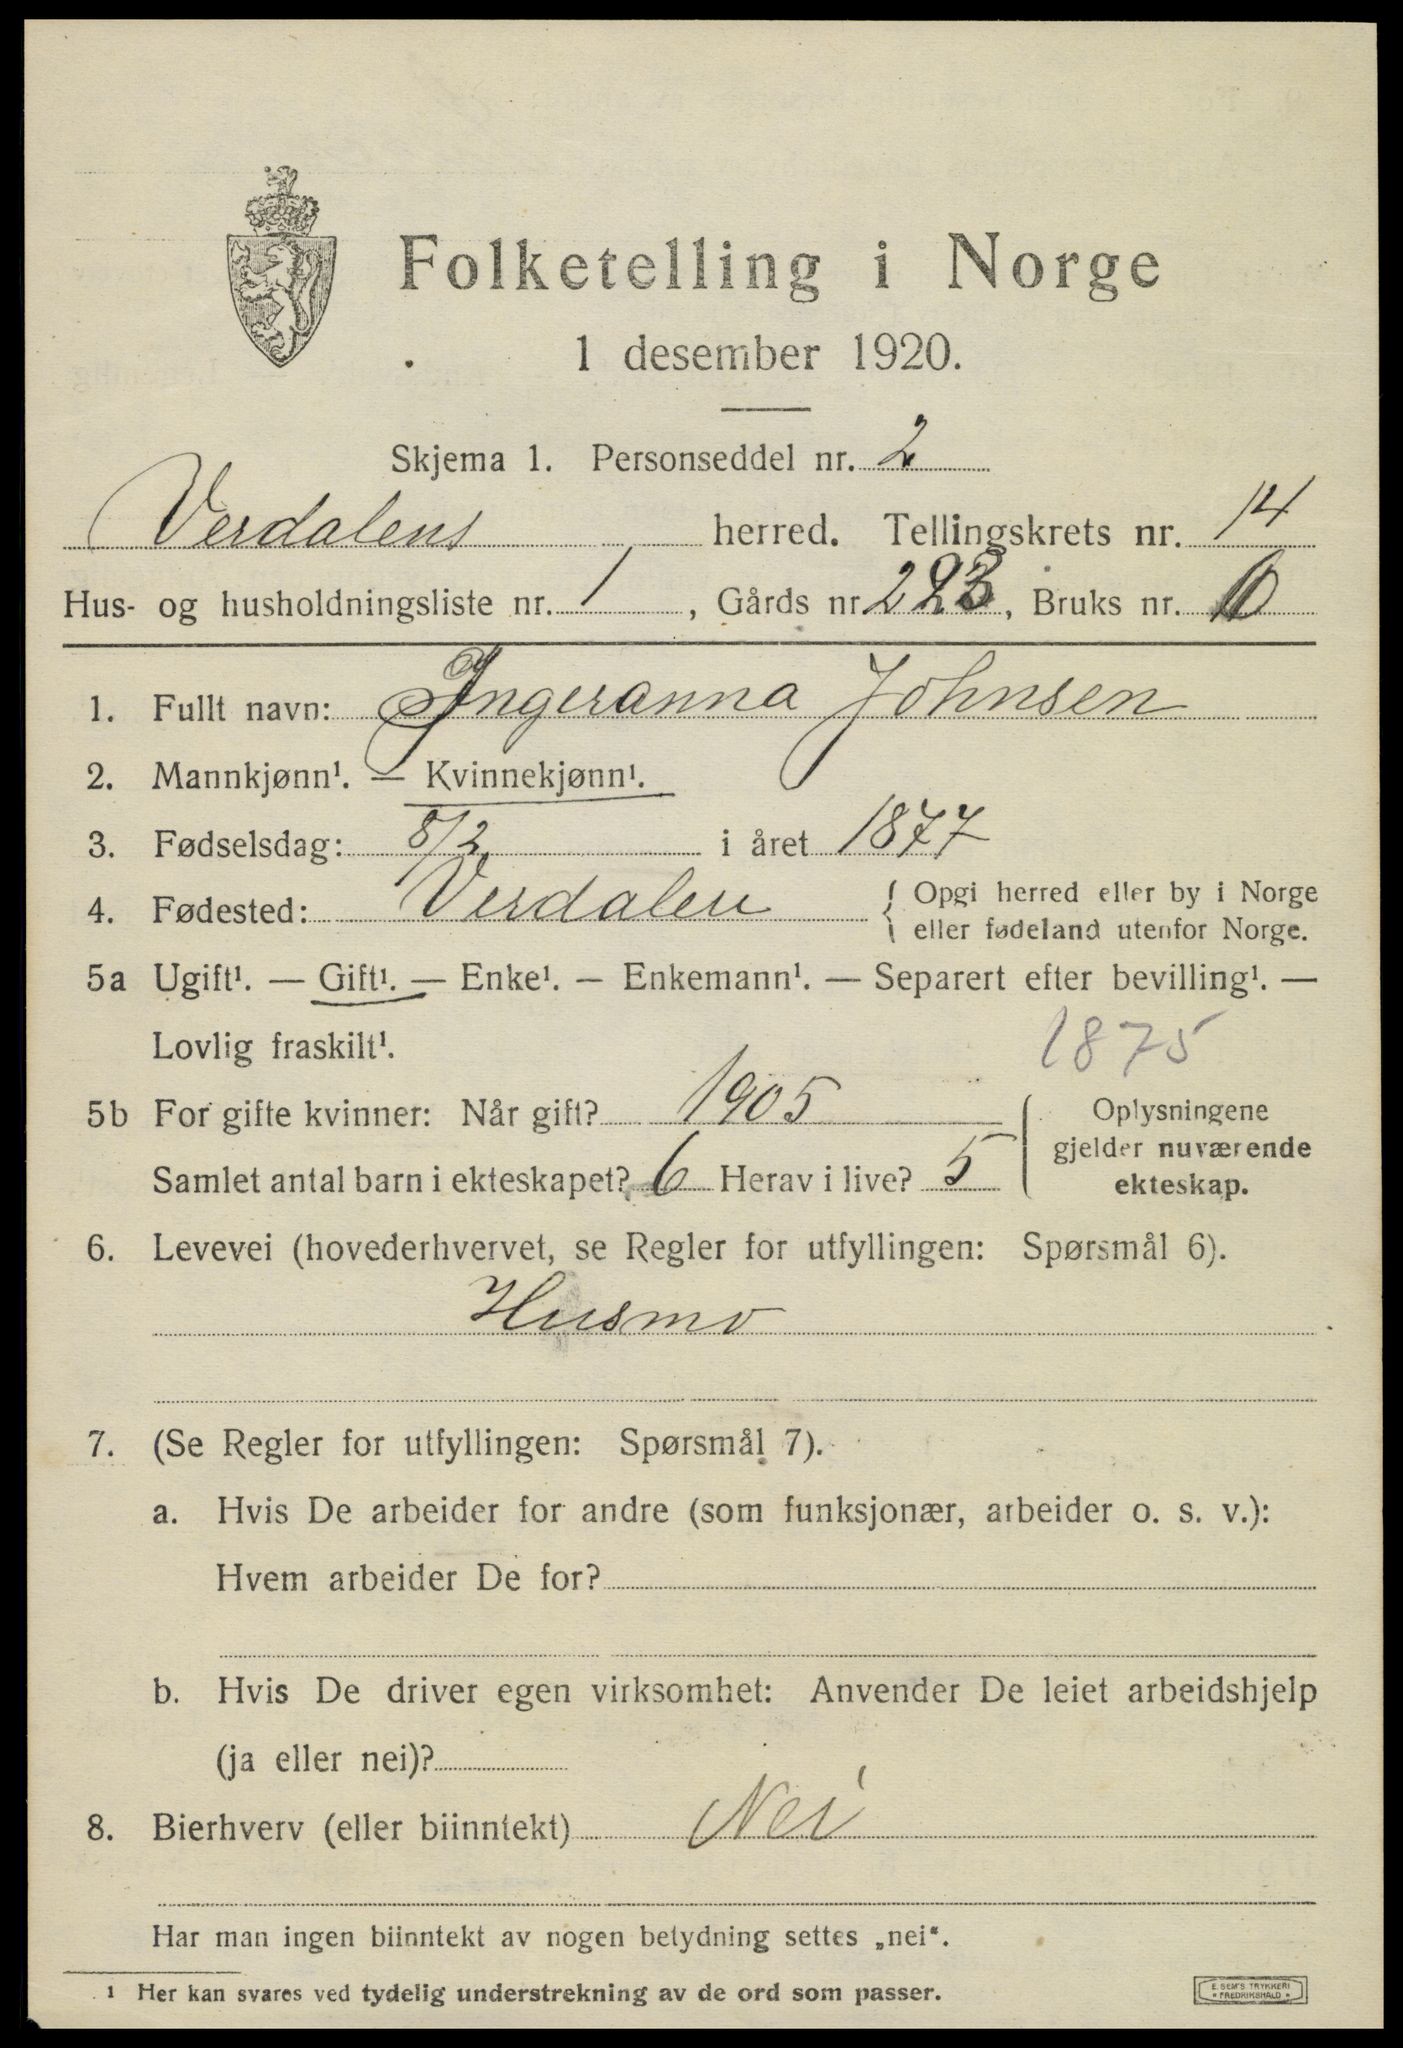 Folketelling i Norge
1 desember 1920.
Skjema 1. Personseddel nr. 2
Verdalens herred. Tellingskrets nr. 14
Hus- og husholdningsliste nr. 1, Gårds nr. 223, Bruks nr.
1. Fullt navn: Ingeranna Johnsen
2. Mannkjønn¹. — Kvinnekjønn¹.
3. Fødselsdag: 8/2 i året 1877
4. Fødested: Verdalen { Opgi herred eller by i Norge
eller fødeland utenfor Norge.
5a Ugift¹. — Gift¹. — Enke¹. — Enkemann¹. — Separert efter bevilling¹. —
Lovlig fraskilt¹.
1875
5b For gifte kvinner: Når gift? 1905
Samlet antal barn i ekteskapet? 6 Herav i live? 5
Oplysningene
gjelder nuværende
ekteskap.
6. Levevei (hovederhvervet, se Regler for utfyllingen: Spørsmål 6).
Husmo
7. (Se Regler for utfyllingen: Spørsmål 7).
a. Hvis De arbeider for andre (som funksjonær, arbeider o. s. v.):
Hvem arbeider De for?
b. Hvis De driver egen virksomhet: Anvender De leiet arbeidshjelp
(ja eller nei)?
8. Bierhverv (eller biinntekt) Nei
Har man ingen biinntekt av nogen betydning settes „nei“.
¹ Her kan svares ved tydelig understrekning av de ord som passer.
E. SEM'S TRYKKERI
* FREDRIKSHALD *